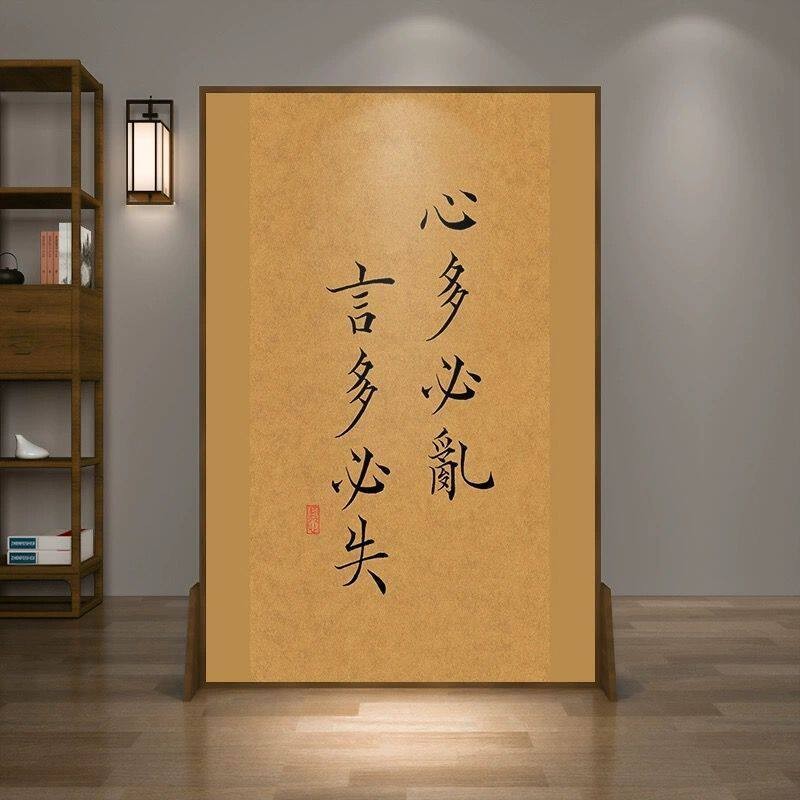 心多必亂
言多必失
ZHENFEISHER
ZHENFEISHER